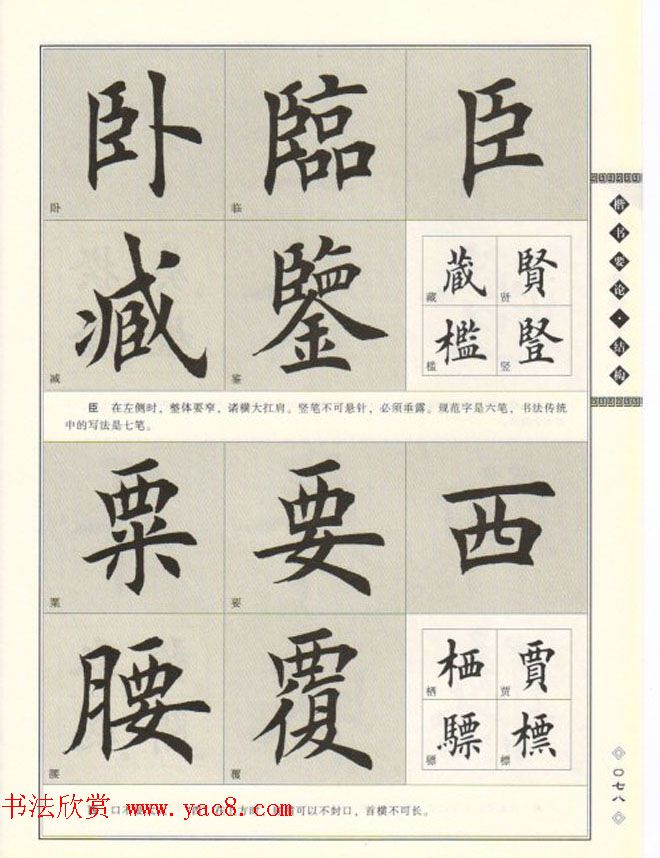 卧 臨 臣
卧 临
臧 鑒
臧 鉴
藏 賢
藏 贤
檻 豎
槛 竖
臣 在左侧时，整体要窄，诸横大扛肩。竖笔不可悬针，必须垂露。规范字是六笔，书法传统
中的写法是七笔。
粟 要 西
粟 要
腰 覆
腰 覆
栖 賈
栖 贾
驃 標
骠 标
可以不封口，首横不可长。
书法欣赏 www.yac8.com
楷书要论·结构
〇七八